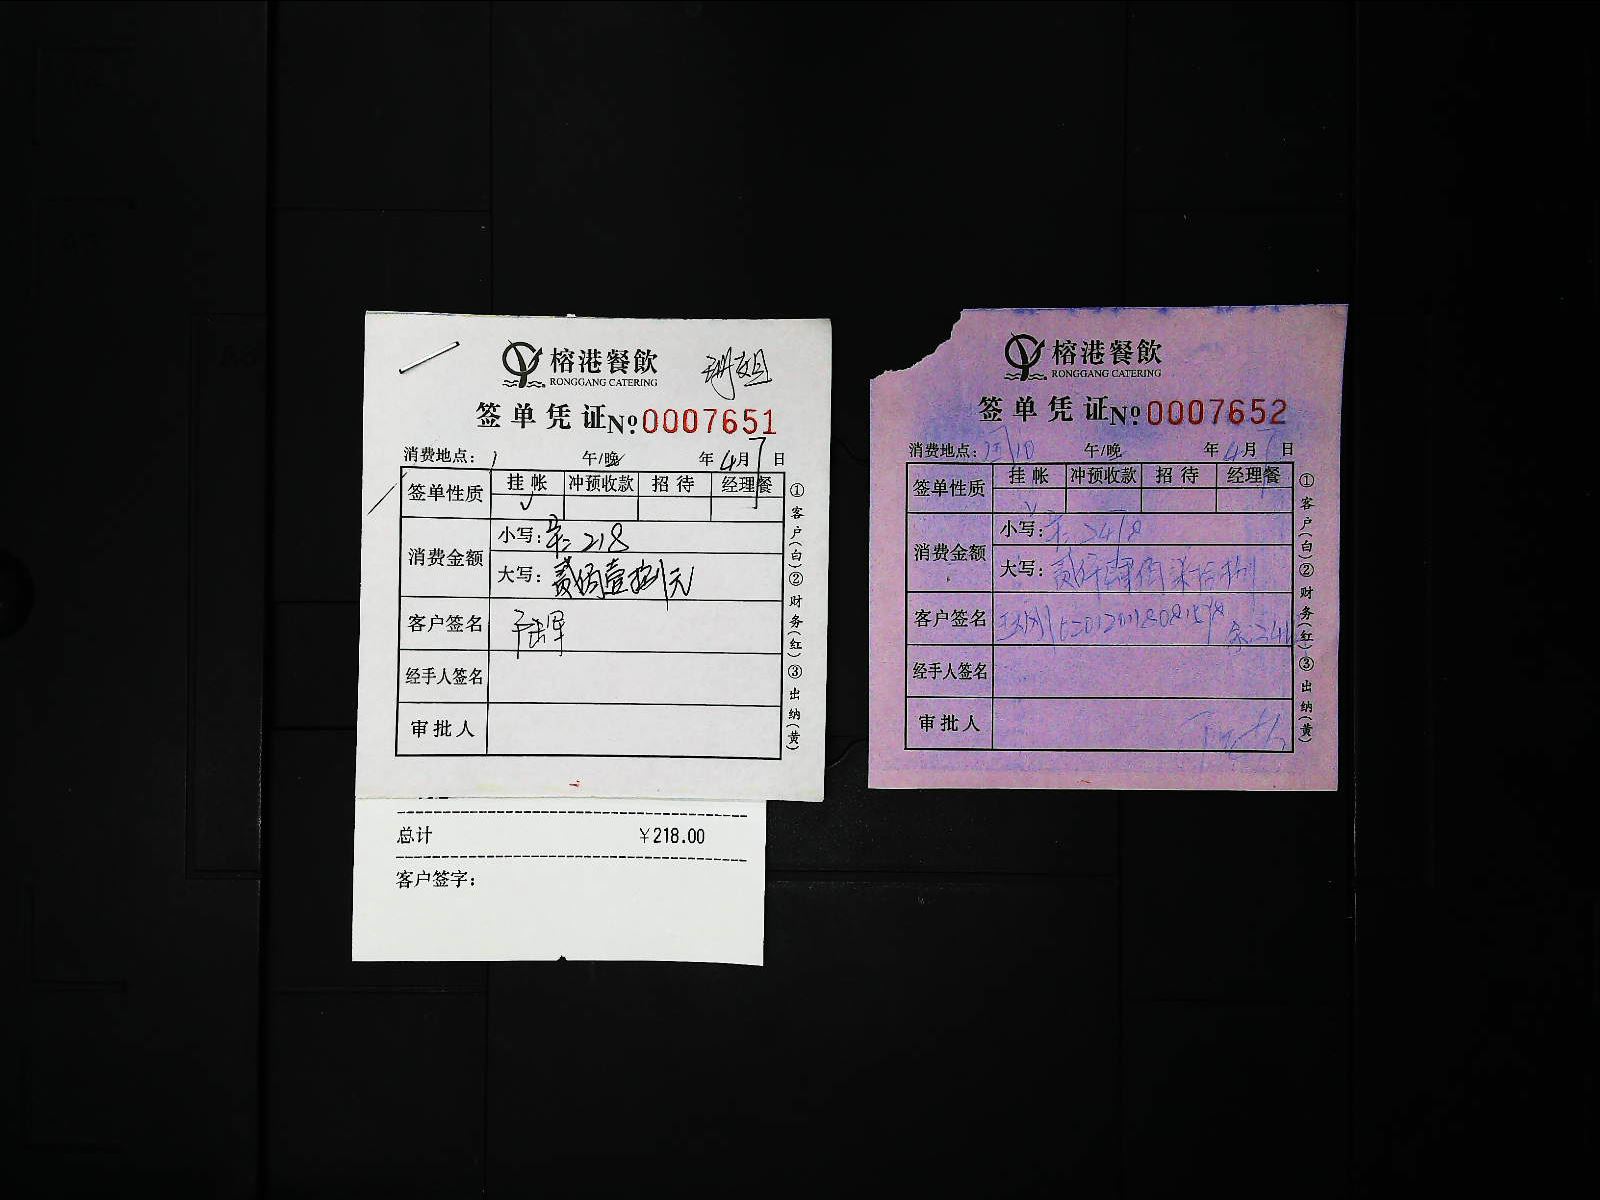 榕港餐飲
RONGGANG CATERING
签单凭证№:0007651
消费地点: 午/晚 年4月7日
签单性质 挂帐 冲预收款 招待 经理餐
✓
消费金额 小写: 218
大写: 贰佰壹拾捌元
客户签名
经手人签名
审批人
①客户(白)②财务(红)③出纳(黄)
总计 ¥218.00
客户签字:
榕港餐飲
RONGGANG CATERING
签单凭证№:0007652
消费地点: 午/晚 年4月 日
签单性质 挂帐 冲预收款 招待 经理餐
消费金额 小写:
大写:
客户签名
经手人签名
审批人
①客户(白)②财务(红)③出纳(黄)